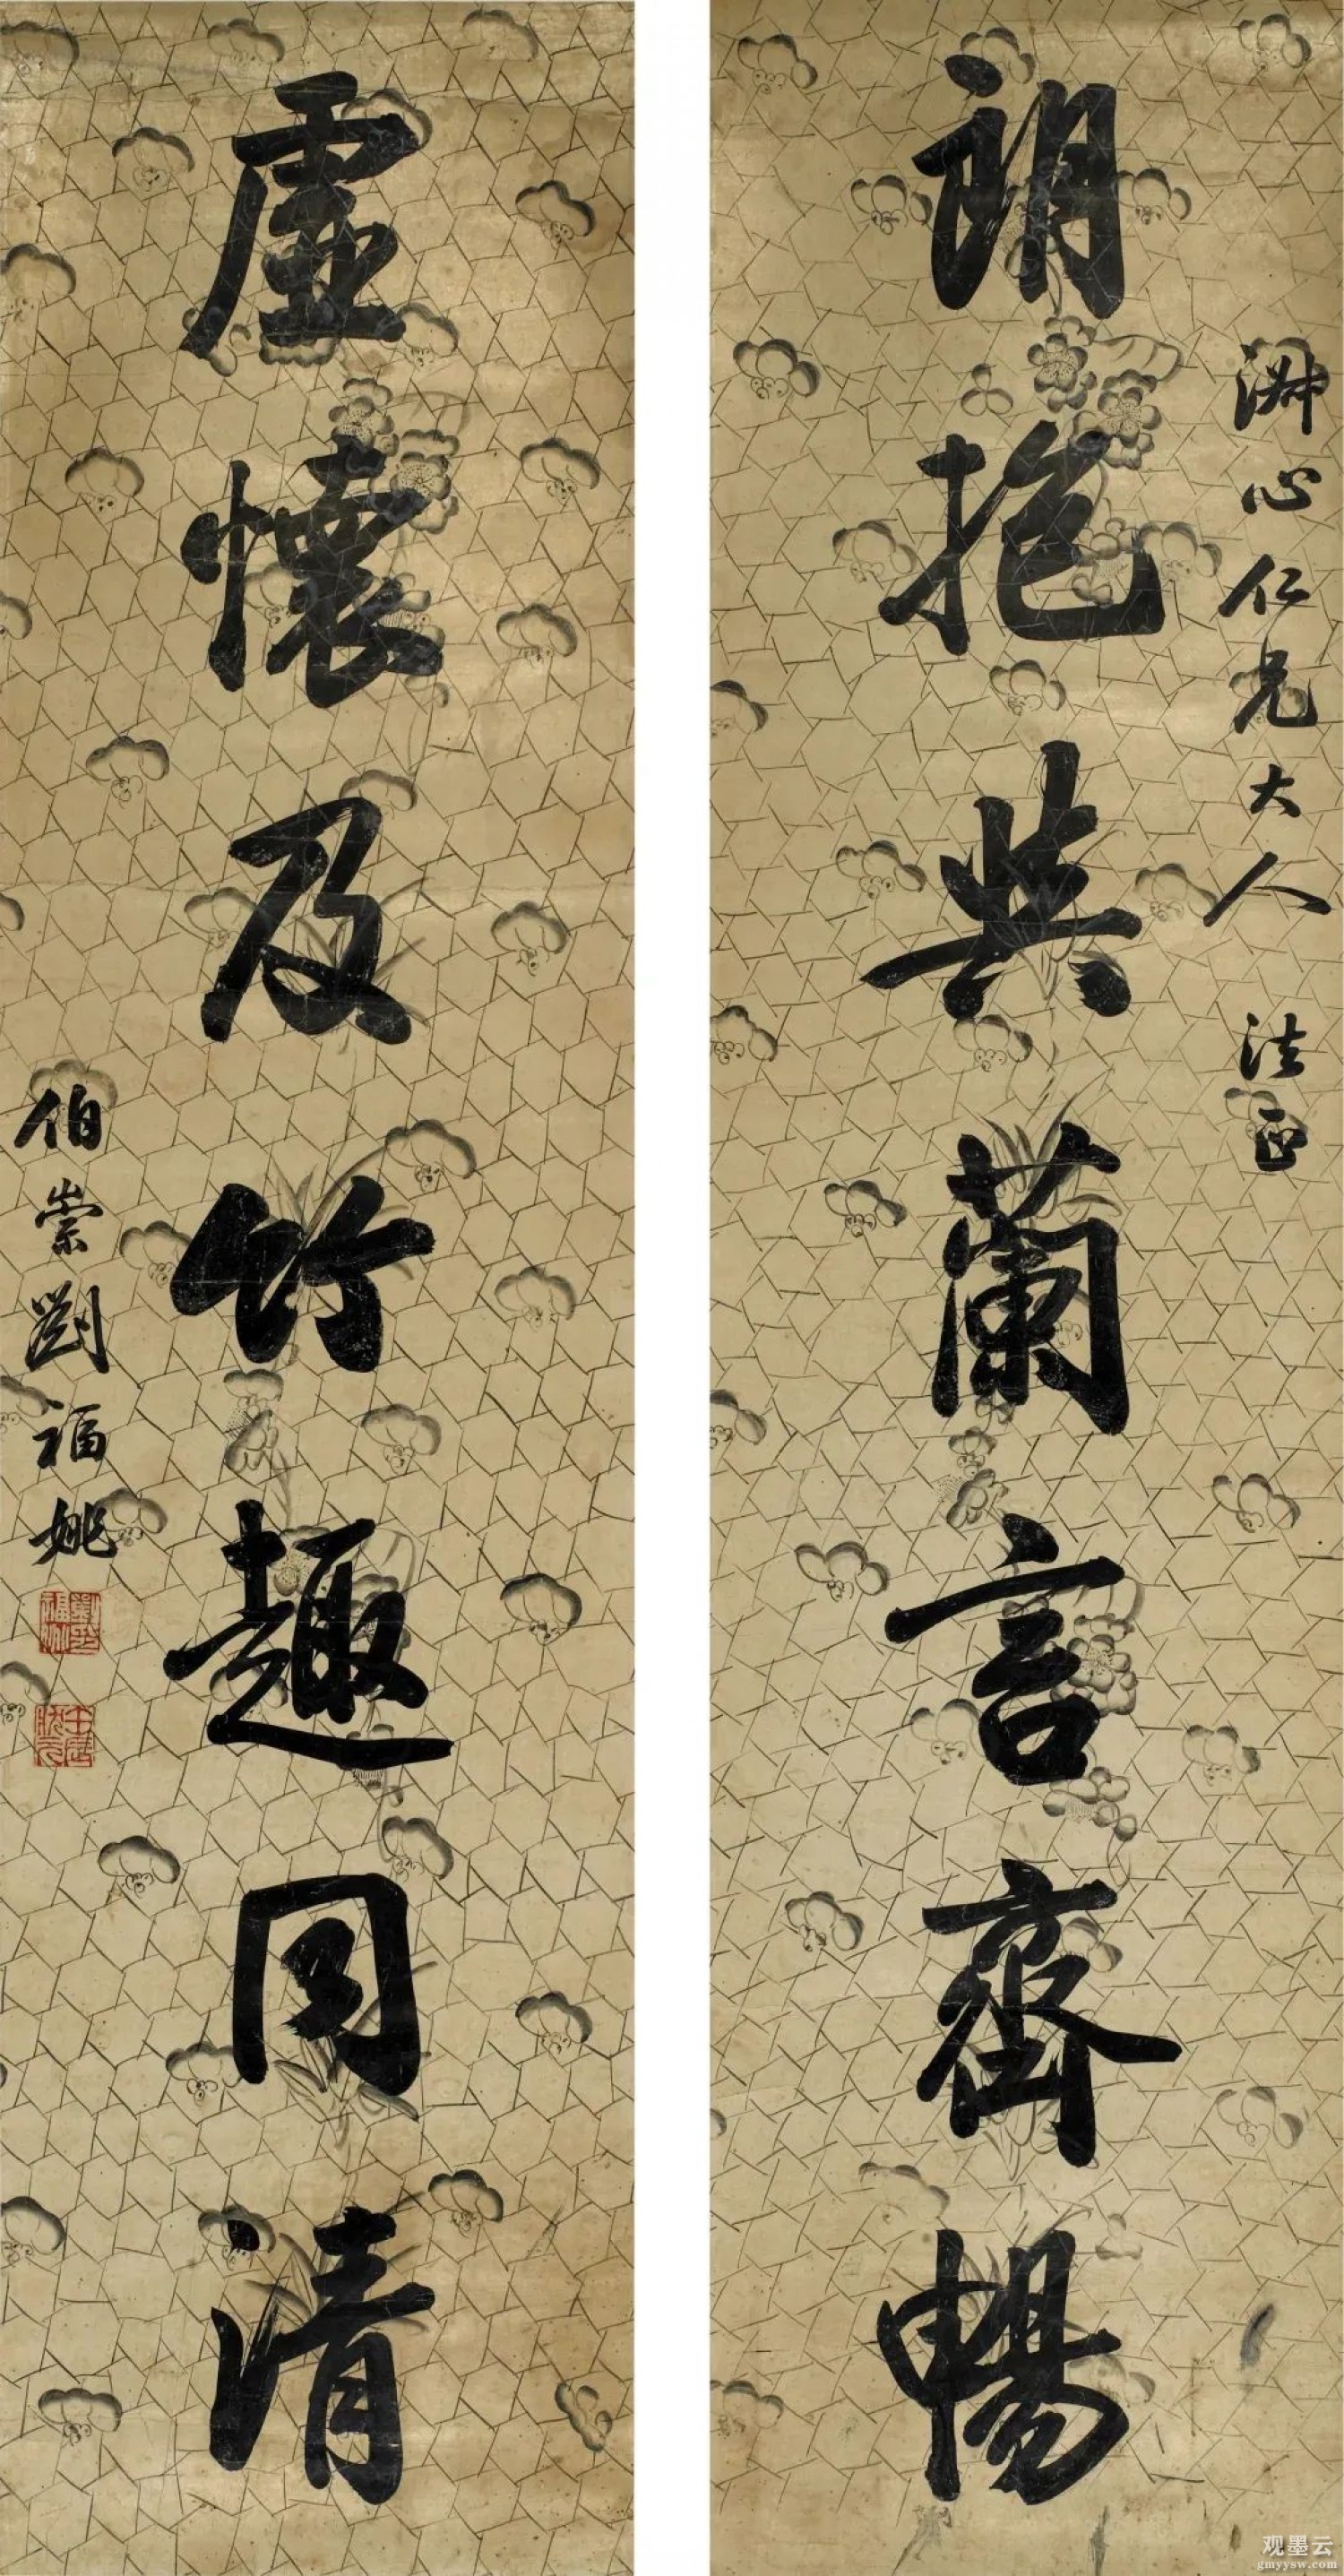 淵心仁兄大人 法正
朗抱共蘭言齊暢
虛懷及竹趣同清
伯崇劉福姚
劉福姚印
壬辰狀元
观墨云
gmyysw.com